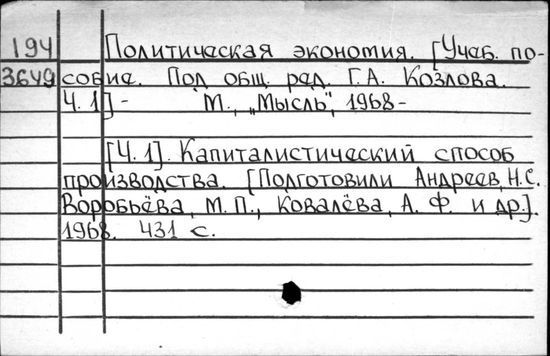 194 Политическая экономия. [Учеб. по-
3649 собие. Под общ. ред. Г.А. Козлова.
Ч. 1] - М., „Мысль", 1968-
[Ч. 1]. Капиталистический способ
производства. [Подготовили Андреев, Н.С.
Воробьёва, М. П., Ковалёва, А. Ф. и др.].
1968. 431 с.